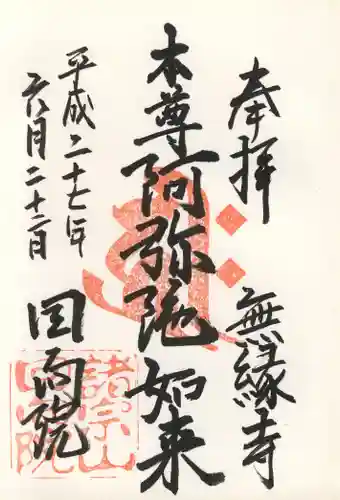 奉拝
無縁寺
本尊阿弥陀如来
平成二十七年
六月二十二日
回向院
諸宗山
回向院